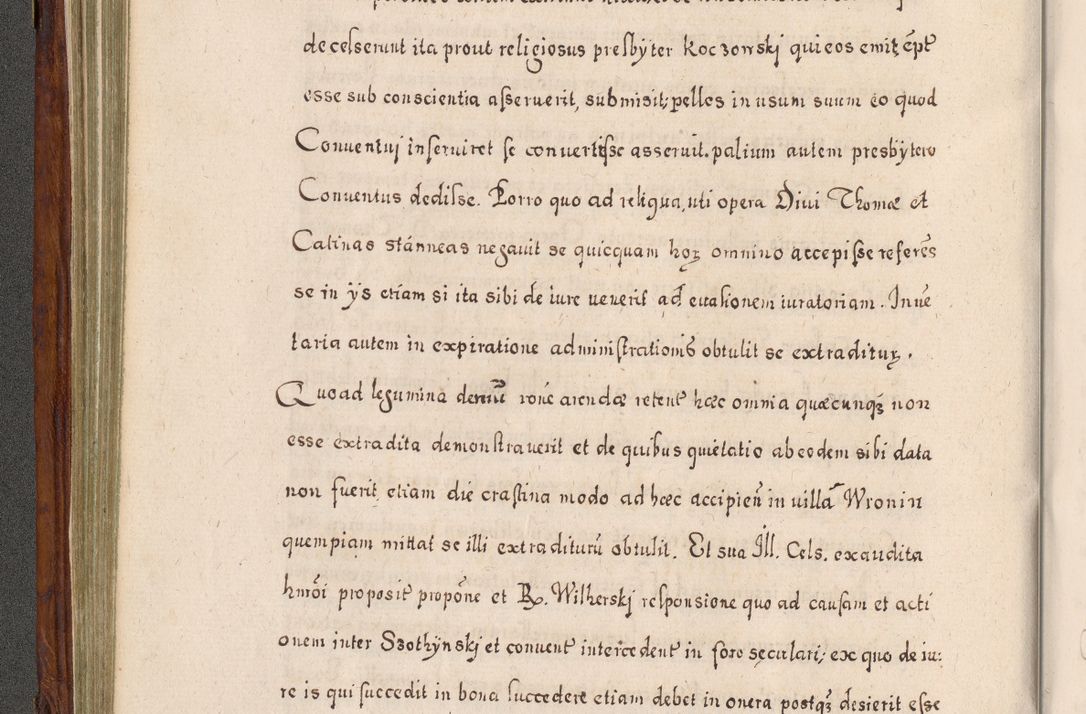 decesserunt ita prout religiosus presbyter Koczowskj qui eos emit ēpt
esse sub conscientia asseruerit, submisit; pelles in usum suum eo quod
Conuentuj inseruiret se conuertisse asseruit. palium autem presbytero
Conuentus dedisse. Porro quo ad reliqua, uti opera Diui Thomæ et
Catinas stánneas negauit se quicquam hoꝝ omnino accepisse referēs
se in ÿs etiam si ita sibi de iure uenerit ad euationem iuratoriam. Inuē
taria autem in expiratione administrationis obtulit se extradituꝝ.
Quoad legumina rōne arendæ retent hæc omnia quæcunqꝫ non
esse extradita demonstrauerit et de quibus quietatio ab eodem sibi data
non fuerit, etiam die crastina modo ad hæc accipien̄ in uillā Wronin
quempiam mittat se illi extraditurū obtulit. Et sua Ill. Cels. exaudita
hmōi proposit propōne et R. Wilherskj responsione quo ad causam et acti
onem inter Szothÿnskj et conuent intercedent in foro seculari; ex quo de iu:
re is qui succedit in bona succedere etiam debet in onera postqꝫ desierit esse